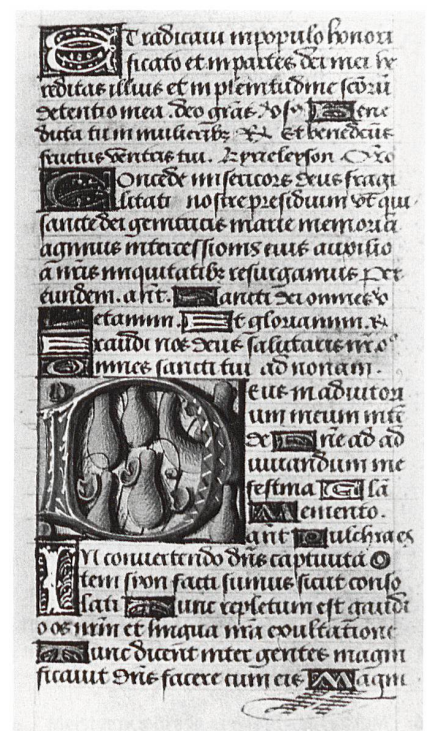 Et radicavi in populo honori
ficato et in partes dei mei he
reditas illius et in plenitudine scorū
detentio mea. deo grās. Bene
dicta tu in mulieribꝫ ℟. Et benedictus
fructus ventris tui. Kyrieleyson
Concede misericors deus fragi
litati nostre presidium vt qui
sancte dei genitricis marie memoriā
agimus intercessionis eius auxilio
a nr̄is iniquitatibꝫ resurgamus Per
eundem. añt. Sancti dei omnes
etamini. Et gloriamini. ℟
Exaudi nos deus salutaris nr̄
Omnes sancti tui ad nonam.
Deus in adiutori
um meum intē
de Dn̄e ad ad
iuuandum me
festina Glā
Memento.
añt Pulchra es
In convertendo dn̄s captivitā
tem sion facti sumus sicut conso
lati Tunc repletum est gaudi
o os nrm̄ et lingua nrā exultatione
Tunc dicent inter gentes magni
ficavit dn̄s facere cum eis Magni